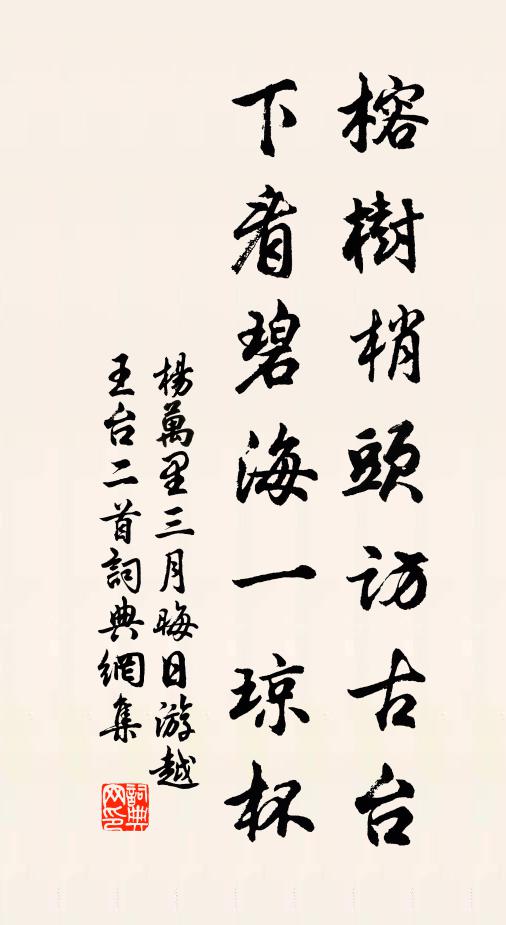 榕樹梢頭訪古台
下看碧海一琼杯
楊萬里三月晦日游越
王台二首詞典網集
詞典
网印